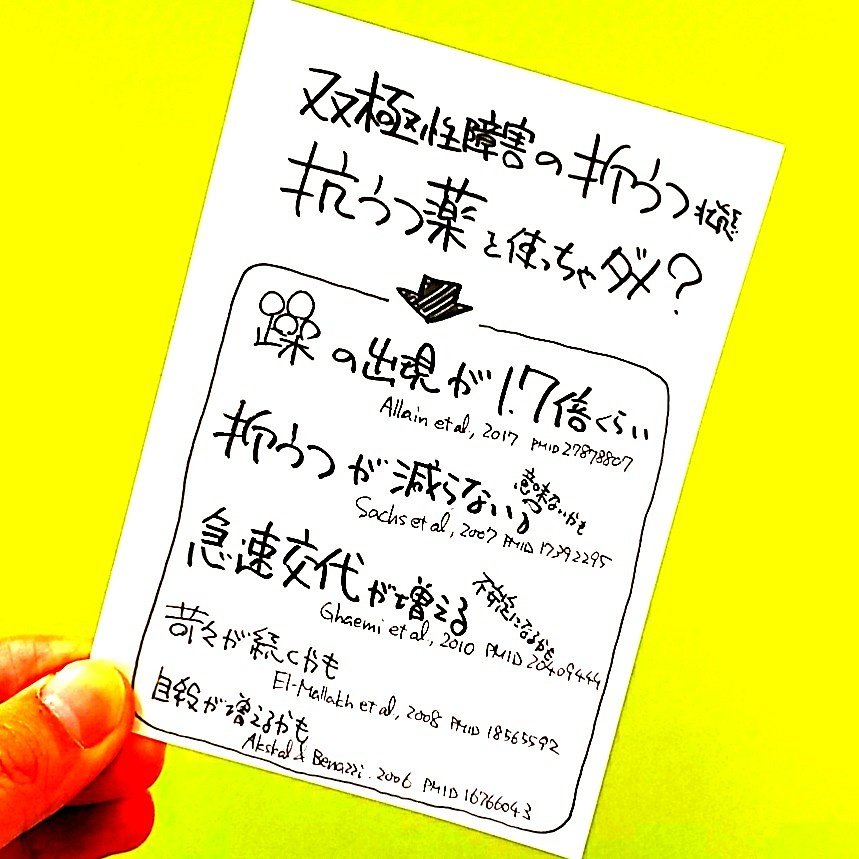 双極性障害の抑うつ状態
抗うつ薬を使っちゃダメ?
躁の出現が1.7倍くらい
Allain et al., 2017 PMID 27878807
抑うつが減らない
意味ないかも
Sachs et al., 2007 PMID 17392295
急速交代が増える
不安定になるかも
Ghaemi et al., 2010 PMID 20409444
苛々が続くかも
El-Mallakh et al., 2008 PMID 18565592
自殺が増えるかも
Akskal & Benazzi. 2006 PMID 16766043